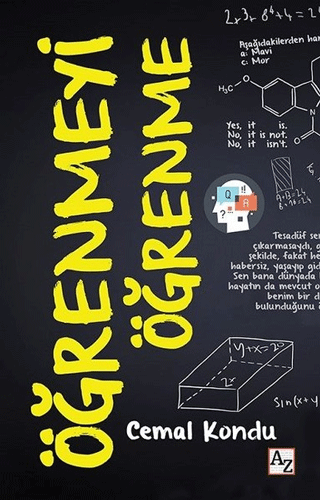 ÖĞRENMEYİ
ÖĞRENME
2x3x 8⁴+4=2
Aşağıdakilerden han
a: Mavi
c: Mor
H₃C
O
N
Yes, it is.
No, it is not.
No, it isn't.
Q
A
A+B=24
Tesadüf sen
çıkarmasaydı, a
şekilde, fakat he
habersiz, yaşayıp gid
Sen bana dünyada
hayatın da mevcut o
benim bir d
bulunduğunu ö
y+x=20
2x
Sin(x+y
Cemal Kondu
AZ